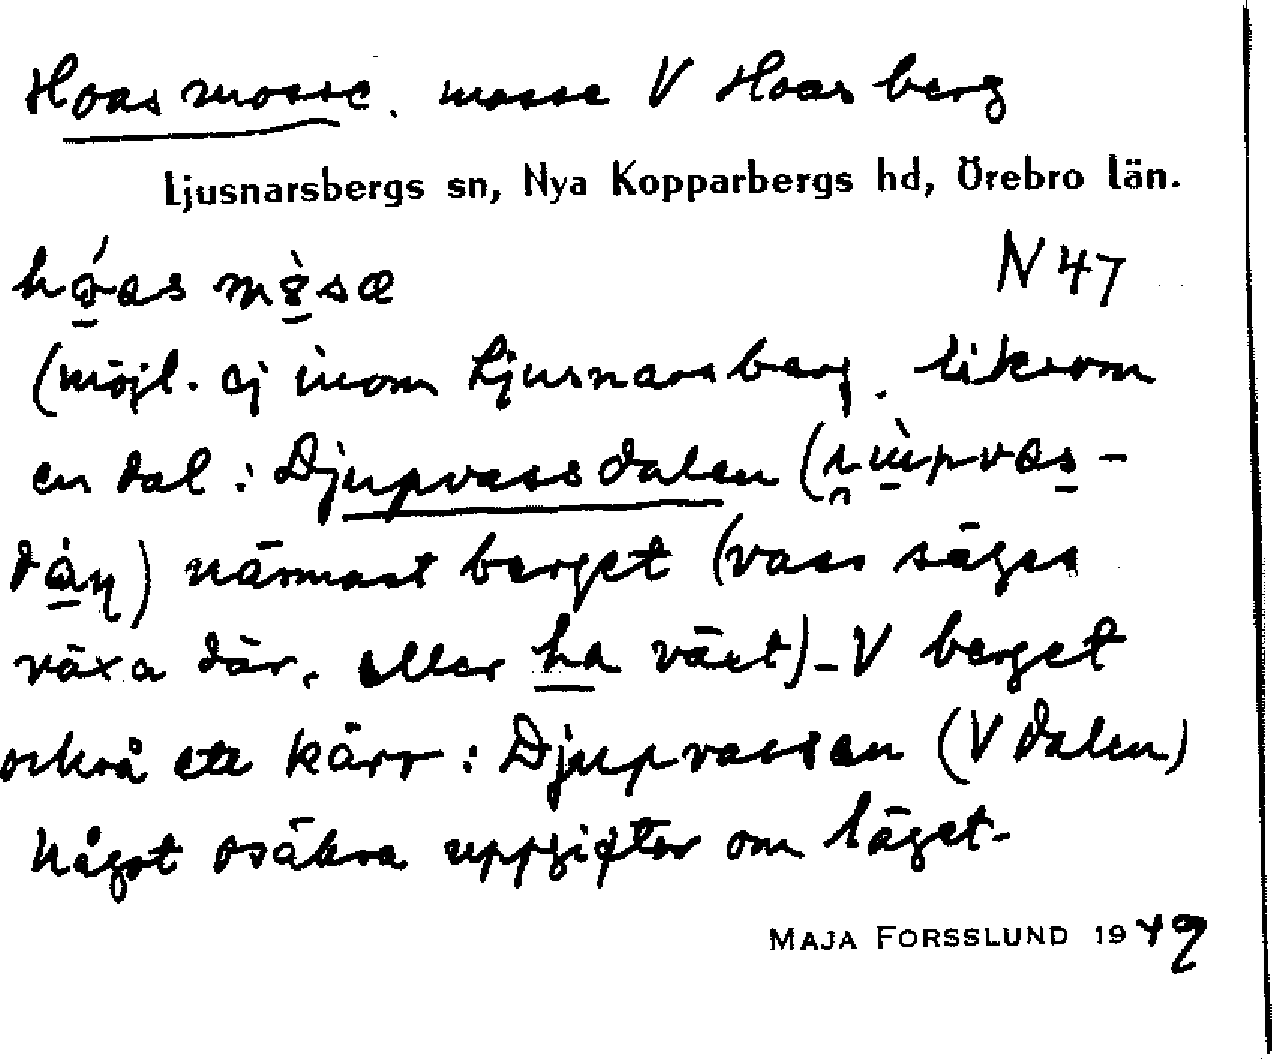 Hoasmosse. mosse V Hoasberg
Ljusnarsbergs sn, Nya Kopparbergs hd, Örebro län.
hóas mòsæ N 47
(möjl. ej inom Ljusnarsberg. liksom
en dal: Djupvassdalen
närmast berget (vass säges
växa där, eller ha växt) – V berget
också ett kärr: Djupvassen (V dalen)
Något osäkra uppgifter om läget.
MAJA FORSSLUND 1949